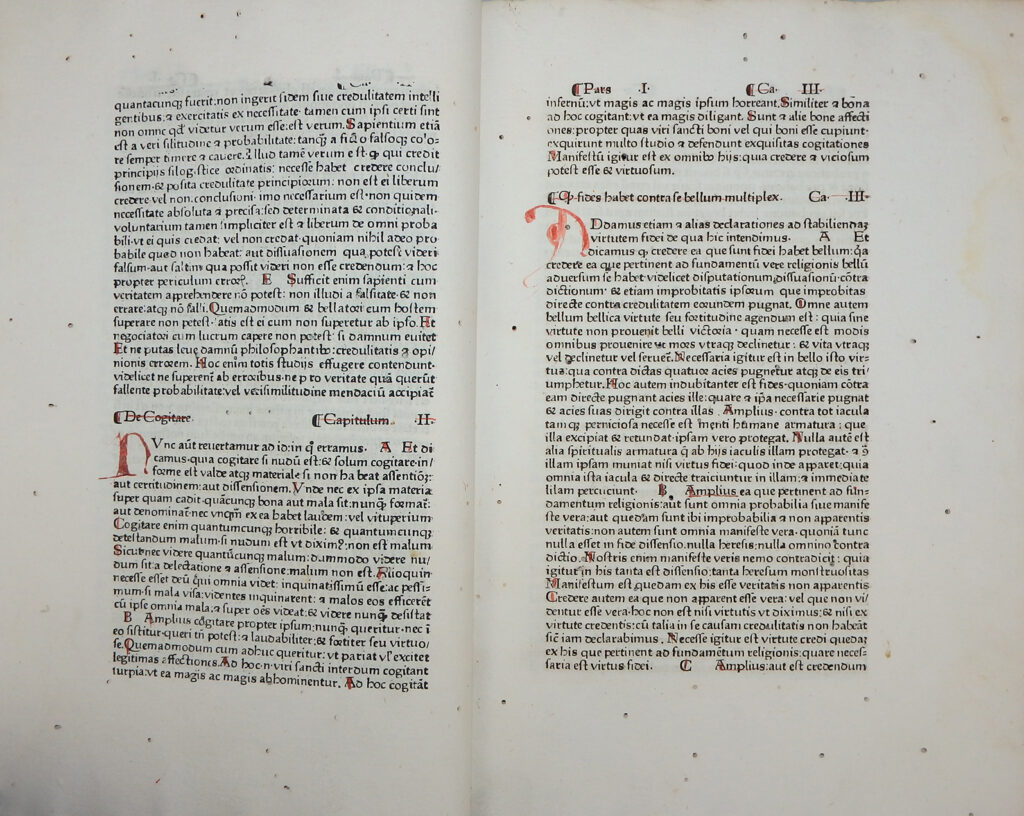 quantacunqꝫ fuerit:non ingerit fidem siue credulitatem intelli
gentibus:⁊ exercitatis ex necessitate· tamen cum ipsi certi sint
non omne qd̛ videtur verum esse:est verum. Sapientium etiā
est a veri silitudine ⁊ probabilitate: tanqꝫ a ficto falsoqꝫ co'o
re semper timere ⁊ cauere. Illud tamē verum est· ꝙ qui credit
principijs silogistice ordinatis: necesse habet credere conclu/
sionem·⁊ posita credulitate principiorum: non est ei liberum
credere vel non conclusioni· imo necessarium est·non quidem
necessitate absoluta ⁊ precisa:sed determinata ⁊ conditionali·
voluntarium tamen simpliciter est ⁊ liberum de omni proba
bili·vt ei quis credat: vel non credat·quoniam nihil adeo pro
babile quod non habeat: aut dissuasionem qua potest videri
falsum·aut saltim qua possit videri non esse credendum: ⁊ hoc
propter periculum erroꝝ. E Sufficit enim sapienti cum
veritatem apprehendere nō potest: non illudi a falsitate·⁊ non
errare.atqꝫ nō falli. Quemadmodum ⁊ bellatori cum hostem
superare non potest· satis est ei cum non superetur ab ipso. Et
negociatori cum lucrum capere non potest: si damnum euitet
Et ne putas leue damnū philosophantibꝰ:credulitatis ⁊ opi/
nionis errorem. Hoc enim totis studijs effugere contendunt·
videlicet ne superent̛ ab erroribus·ne pro veritate quā querūt
fallente probabilitate:vel verisimilitudine mendaciū accipiāt
¶De Cogitare. ¶Capitulum II·
NVnc aūt reuertamur ad id:in q̄ erramus· A Et di
camus·quia cogitare si nudū est:⁊ solum cogitare·in/
forme est valde atqꝫ materiale si non habeat assentiōꝫ:
aut certitudinem:aut dissensionem. Vnde nec ex ipsa materia
super quam cadit·quācunqꝫ bona aut mala sit:nunqꝫ format̛:
aut denominat̛·nec vnqꝫ ex ea habet laudem:vel vituperium
Cogitare enim quantumcunqꝫ horribile: ⁊ quantumcunqꝫ
detestandum malum·si nudum est vt dixim⁹:non est malum
Sicut nec videre quantūcunqꝫ malum: dummodo videre nu/
dum sit:a delectatione ⁊ assensione: malum non est. Alioquin
necesse esset deū qui omnia videt: inquinatissimū esse:ac pessi⸗
mum·si mala visa:videntes inquinarent: ⁊ malos eos efficerēt
cū ipse omnia mala:⁊ super oēs videat:⁊ videre nunqꝫ desistat
B Amplius cogitare propter ipsum:nunqꝫ queritur·nec ī
eo sistitur·queri tn̄ potest:⁊ laudabiliter:⁊ fortiter seu virtuo/
se. Quemadmodum cum adhuc queritur: vt pariat vl̛ excitet
legitimas affectiones. Ad hoc·n·viri sancti interdum cogitant
turpia:vt ea magis ac magis abhominentur. Ad hoc cogitāt
¶Pars ·I· ¶Ca· III·
infernū:vt magis ac magis ipsum horreant. Similiter ⁊ bona
ad hoc cogitant:vt ea magis diligant. Sunt ⁊ alie bone affecti
ones:propter quas viri sancti boni vel qui boni esse cupiunt·
exquirunt multo studio ⁊ defendunt exquisitas cogitationes
Manifestū igitur est ex omnibꝰ hijs:quia credere ⁊ viciosum
potest esse ⁊ virtuosum.
¶Ꝙ fides habet contra se bellum multiplex. Ca· ·III·
ADdamus etiam ⁊ alias declarationes ad stabiliendaꝫ
virtutem fidei de qua hic intendimus· A Et
dicamus ꝙ credere ea que sunt fidei habet bellum:q̄a
credere ea que pertinent ad fundamentū vere religionis bellū
aduersum se habet videlicet disputationum,dissuasionū·cōtra
dictionum· ⁊ etiam improbitatis ipsorum que improbitas
directe contra credulitatem eorundem pugnat. Omne autem
bellum bellica virtute seu fortitudine agendum est: quia sine
virtute non prouenit belli victoria· quam necesse est modis
omnibus prouenire vt mors vtraqꝫ declinetur: ⁊ vita vtraqꝫ
vel declinetur vel seruet̛. Necessaria igitur est in bello isto vir⸗
tus:qua contra dictas quatuor acies pugnetur atqꝫ de eis tri/
umphetur. Hoc autem indubitanter est fides·quoniam cōtra
eam directe pugnant acies ille:quare ⁊ ip̄a necessarie pugnat
⁊ acies suas dirigit contra illas. Amplius·contra tot iacula
tamqꝫ perniciosa necesse est menti humane armatura: que
illa excipiat ⁊ retundat·ipsam vero protegat. Nulla autē est
alia spiritualis armatura q̄ ab hijs iaculis illam protegat· ⁊ ꝯ
illam ipsam muniat nisi virtus fidei:quod inde apparet:quia
omnia ista iacula ⁊ directe traiciuntur in illam:⁊ immediate
illam percuciunt· B. Amplius ea que pertinent ad fun⸗
damentum religionis:aut sunt omnia probabilia siue manife
ste vera:aut quedam sunt ibi improbabilia ⁊ non apparentis
veritatis:non autem sunt omnia manifeste vera·quoniā tunc
nulla esset in fide dissensio.nulla heresis:nulla omnino contra
dictio. Nostris enim manifeste veris nemo contradicit: quia
igitur in his tanta est dissensio:tanta heresum monstruositas
Manifestum est quedam ex his esse veritatis non apparentis
Credere autem ea que non apparent esse vera: vel que non vi/
dentur esse vera·hoc non est nisi virtutis vt diximus:⁊ nisi ex
virtute credentis:cū talia in se causam credulitatis non habeāt
sic̄ iam declarabimus. Necesse igitur est virtute credi quedaꝫ
ex his que pertinent ad fundamētum religionis:quare neces⸗
saria est virtus fidei. C Amplius:aut est credendum